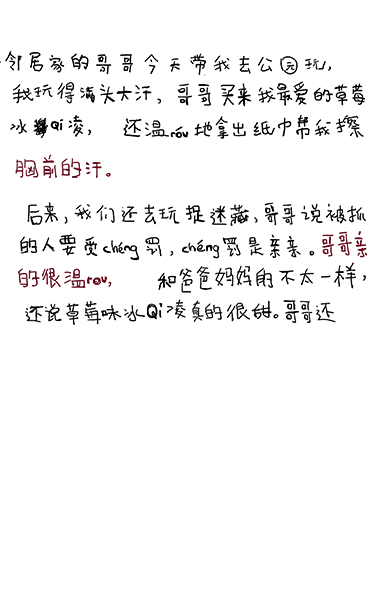 邻居家的哥哥今天带我去公园玩，
我玩得满头大汗，哥哥买来我最爱的草莓
冰Qi凌，还温róu地拿出纸巾帮我擦
胸前的汗。
后来，我们还去玩捉迷藏，哥哥说被抓
的人要受chéng罚，chéng罚是亲亲。哥哥亲
的很温rou，和爸爸妈妈的不太一样，
还说草莓味冰Qi凌真的很甜。哥哥还